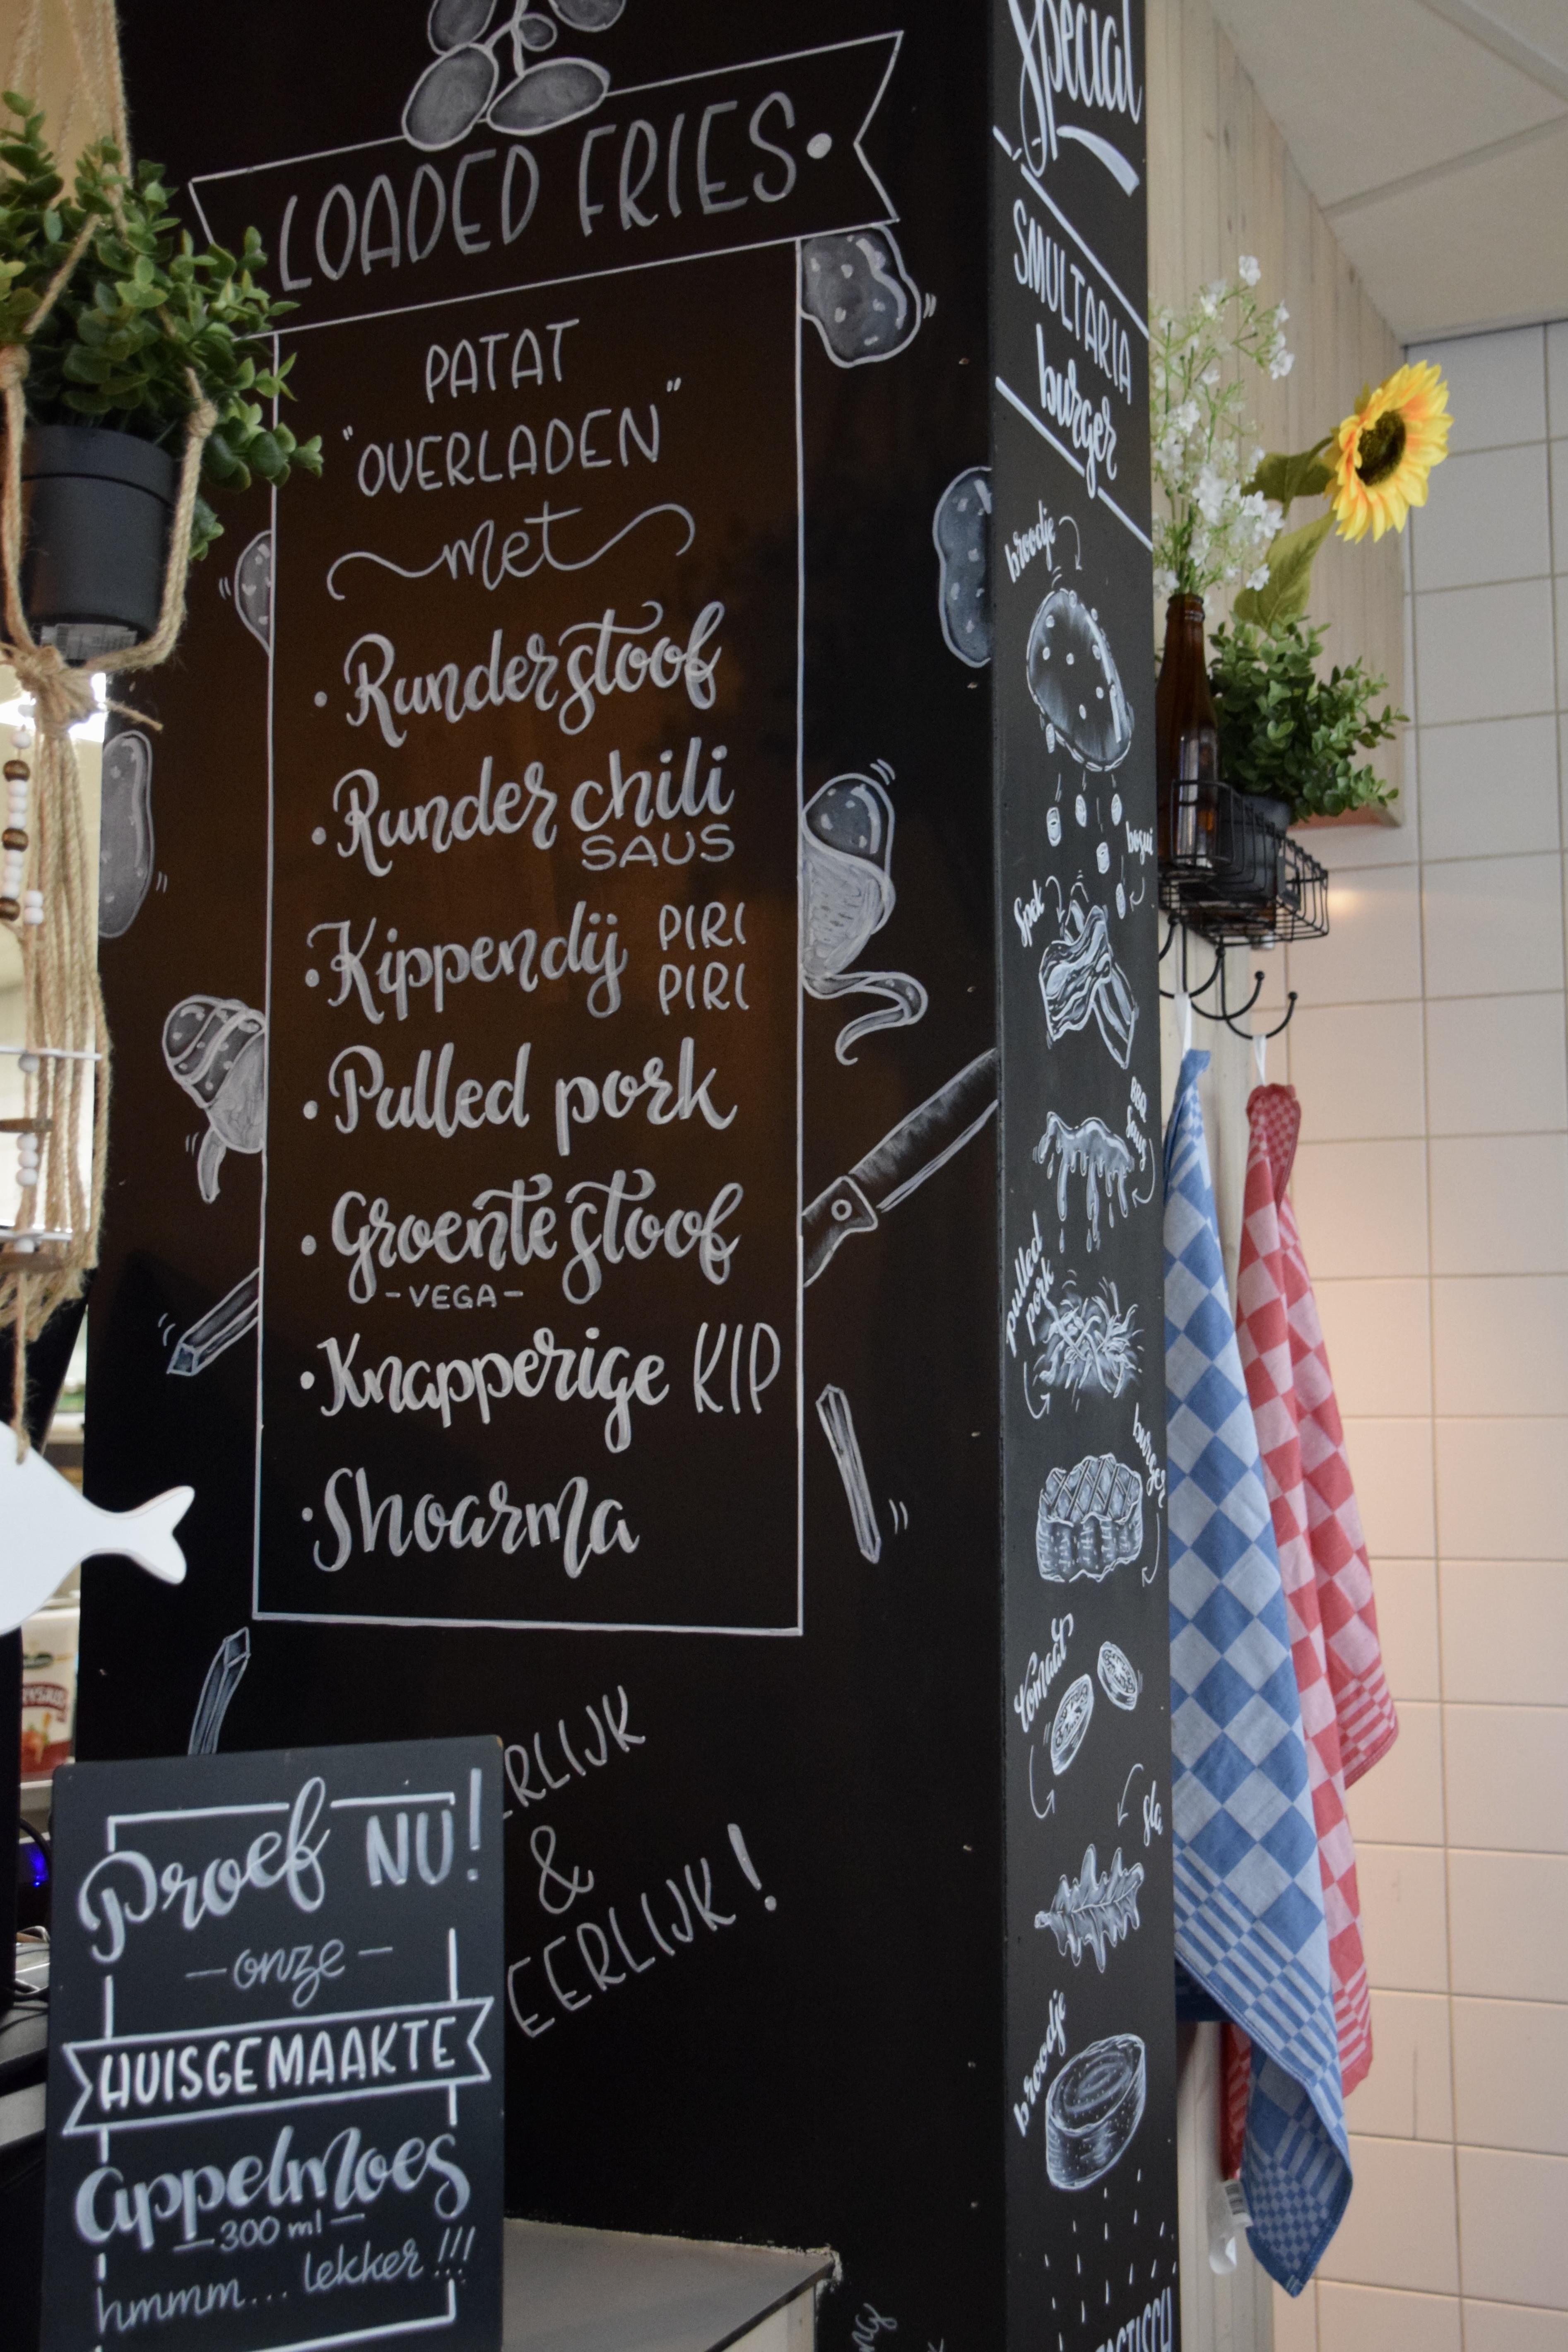 LOADED FRIES.
PATAT
"OVERLADEN"
met
• Runderstoof
• Runder chili
SAUS
• Kippendij PIRI
PIRI
• Pulled pork
• Groentestoof
-VEGA-
• Knapperige KIP
• Shoarma
&
Proef NU!
- onze -
HUISGEMAAKTE
appelmoes
- 300 ml -
hmmm... lekker!!!
Special
SMULTARIA
burger
broodje
spek
BBQ
saus
pulled
pork
burger
tomaat
sla
broodje